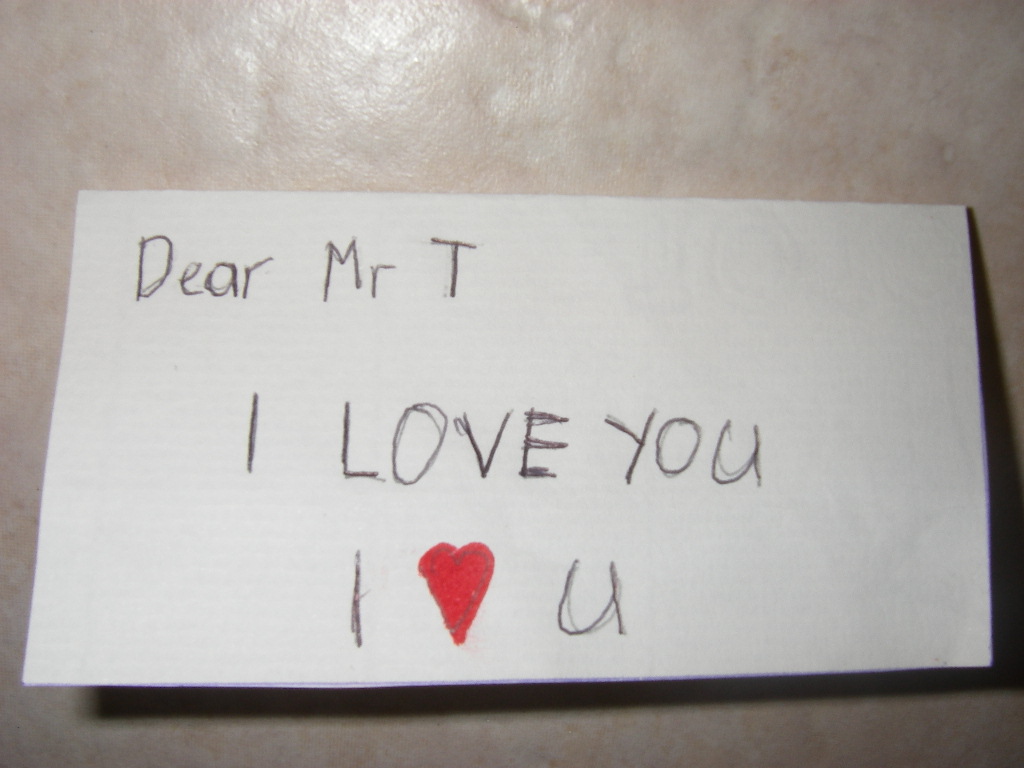 Dear Mr T
I LOVE YOU
I ♥ U